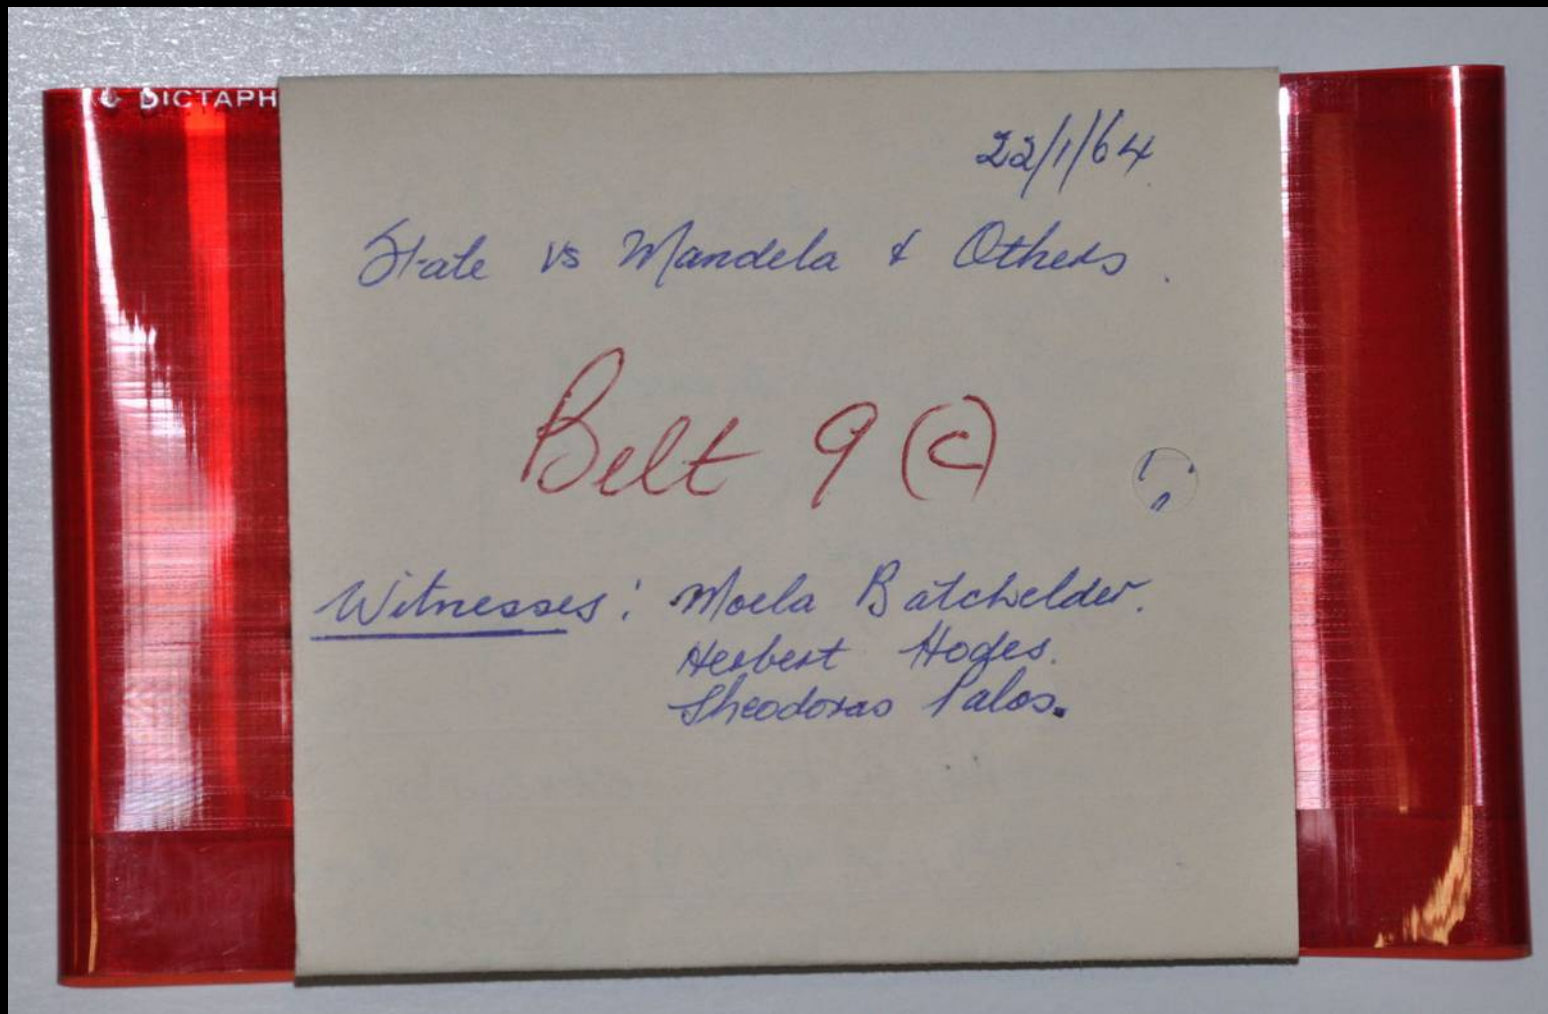 DICTAPH
22/1/64
State vs Mandela & Others.
Belt 9 (c)
Witnesses: Moela Batchelder.
Herbert Hoges.
Theodoras Palos.